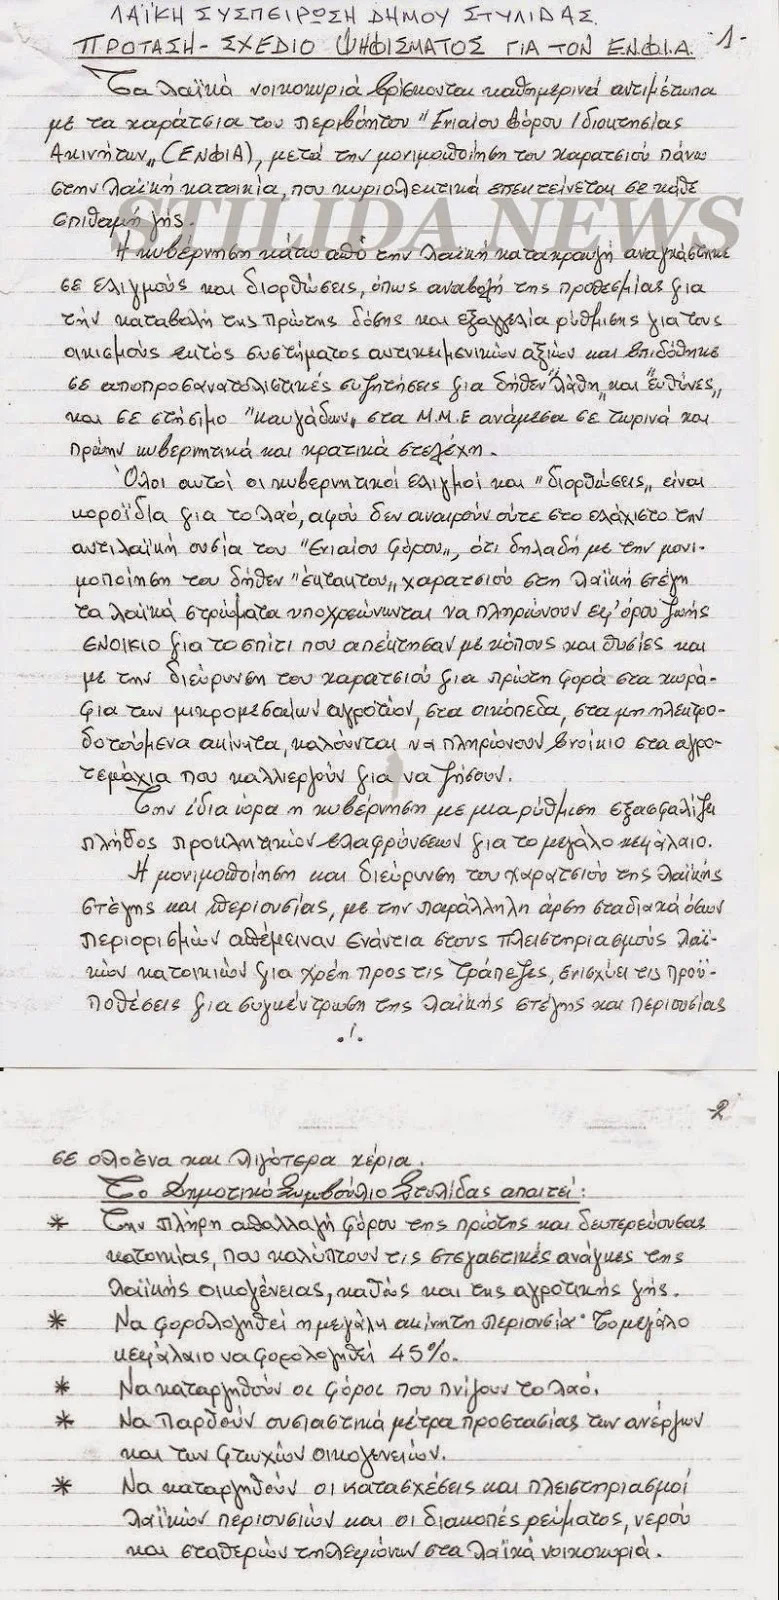 ΛΑΪΚΗ ΣΥΣΠΕΙΡΩΣΗ ΔΗΜΟΥ ΣΤΥΛΙΔΑΣ.
ΠΡΟΤΑΣΗ - ΣΧΕΔΙΟ ΨΗΦΙΣΜΑΤΟΣ ΓΙΑ ΤΟΝ Ε.Ν.Φ.Ι.Α. 1-
Τα λαϊκά νοικοκυριά βρίσκονται καθημερινά αντιμέτωπα
με τα χαράτσια του περιβόητου "Ενιαίου Φόρου Ιδιοκτησίας
Ακινήτων„ (ΕΝΦΙΑ), μετά την μονιμοποίηση του χαρατσιού πάνω
στην λαϊκή κατοικία, που κυριολεκτικά επεκτείνεται σε κάθε
σπιθαμή γής.
STILIDA NEWS
Η κυβέρνηση κάτω από την λαϊκή κατακραυγή αναγκάστηκε
σε ελιγμούς και διορθώσεις, όπως αναβολή της προθεσμίας για
την καταβολή της πρώτης δόσης και εξαγγελία ρύθμισης για τους
οικισμούς εκτός συστήματος αντικειμενικών αξιών και επιδόθηκε
σε αποπροσανατολιστικές συζητήσεις για δήθεν "λάθη„ και "ευθύνες„
και σε στήσιμο "καυγάδων„ στα Μ.Μ.Ε ανάμεσα σε τωρινά και
πρώην κυβερνητικά και κρατικά στελέχη.
Όλοι αυτοί οι κυβερνητικοί ελιγμοί και "διορθώσεις„ είναι
κοροϊδία για το λαό, αφού δεν αναιρούν ούτε στο ελάχιστο την
αντιλαϊκή ουσία του "Ενιαίου Φόρου„, ότι δηλαδή με την μονι-
μοποίηση του δήθεν "έκτακτου„ χαρατσιού στη λαϊκή στέγη
τα λαϊκά στρώματα υποχρεώνονται να πληρώνουν εφ' όρου ζωής
ΕΝΟΙΚΙΟ για το σπίτι που απέκτησαν με κόπους και θυσίες και
με την διεύρυνση του χαρατσιού για πρώτη φορά στα χωρά-
φια των μικρομεσαίων αγροτών, στα οικόπεδα, στα μη ηλεκτρο-
δοτούμενα ακίνητα, καλούνται να πληρώνουν ενοίκιο στα αγρο-
τεμάχια που καλλιεργούν για να ζήσουν.
Την ίδια ώρα η κυβέρνηση με μια ρύθμιση εξασφαλίζει
πλήθος προκλητικών ελαφρύνσεων για το μεγάλο κεφάλαιο.
Η μονιμοποίηση και διεύρυνση του χαρατσιού της λαϊκής
στέγης και περιουσίας, με την παράλληλη άρση σταδιακά όσων
περιορισμών απέμειναν ενάντια στους πλειστηριασμούς λαϊ-
κών κατοικιών για χρέη προς τις τράπεζες, ενισχύει τις προϋ-
ποθέσεις για συγκέντρωση της λαϊκής στέγης και περιουσίας
./.
-2
σε ολοένα και λιγότερα χέρια.
Το Δημοτικό Συμβούλιο Στυλίδας απαιτεί:
* Την πλήρη απαλλαγή φόρου της πρώτης και δευτερεύουσας
κατοικίας, που καλύπτουν τις στεγαστικές ανάγκες της
λαϊκής οικογένειας, καθώς και της αγροτικής γής.
* Να φορολογηθεί η μεγάλη ακίνητη περιουσία· Το μεγάλο
κεφάλαιο να φορολογηθεί 45%.
* Να καταργηθούν οι φόροι που πνίγουν το λαό.
* Να παρθούν ουσιαστικά μέτρα προστασίας των ανέργων
και των φτωχών οικογενειών.
* Να καταργηθούν οι κατασχέσεις και πλειστηριασμοί
λαϊκών περιουσιών και οι διακοπές ρεύματος, νερού
και σταθερών τηλεφώνων στα λαϊκά νοικοκυριά.